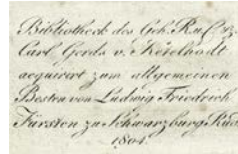 Bibliotheck des Geh. R. u. C. 
Carl Gerds v. Ketelhodt
acquirirt zum allgemeinen
Besten von Ludwig Friedrich
Fürsten zu Schwarzburg Rud.
1804.